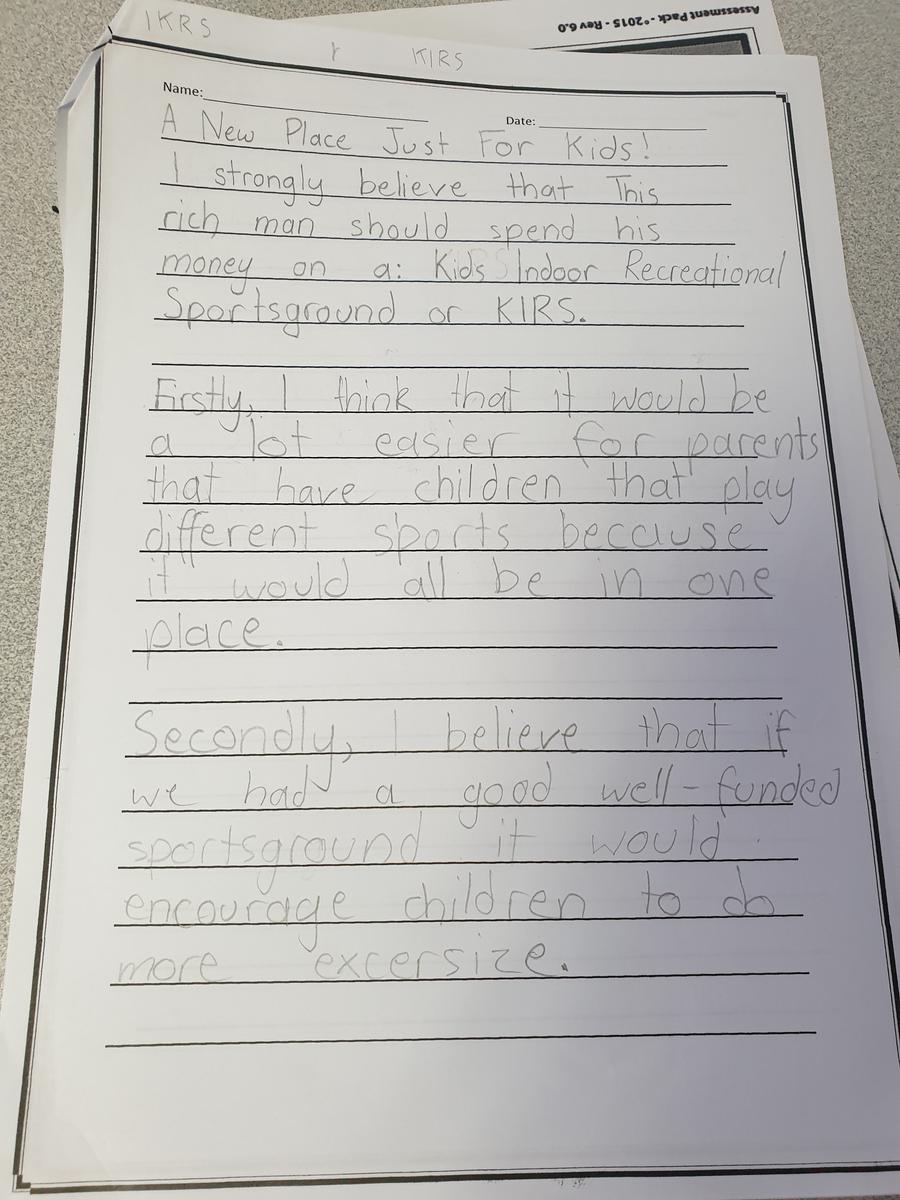 Assessment Pack - ©2015 - Rev 6.0
IKRS
r KIRS
Name:
Date:
A New Place Just For Kids!
I strongly believe that This
rich man should spend his
money on a: Kids Indoor Recreational
Sportsground or KIRS.
Firstly, I think that it would be
a lot easier for parents
that have children that play
different sports because
it would all be in one
place.
Secondly, I believe that if
we had a good well-funded
sportsground it would
encourage children to do
more excersize.